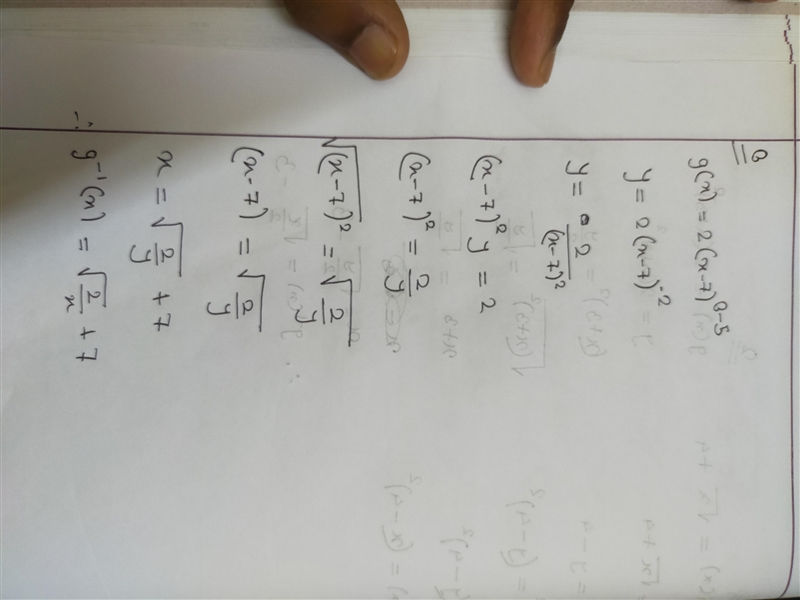 g(x) = 2(x-7)
y = 2(x-7)⁻²
y = 2/(x-7)²
(x-7)² y = 2
(x-7)² = 2/y
√(x-7)² = √(2/y)
(x-7) = √(2/y)
x = √(2/y) + 7
∴ g⁻¹(x) = √(2/x) + 7